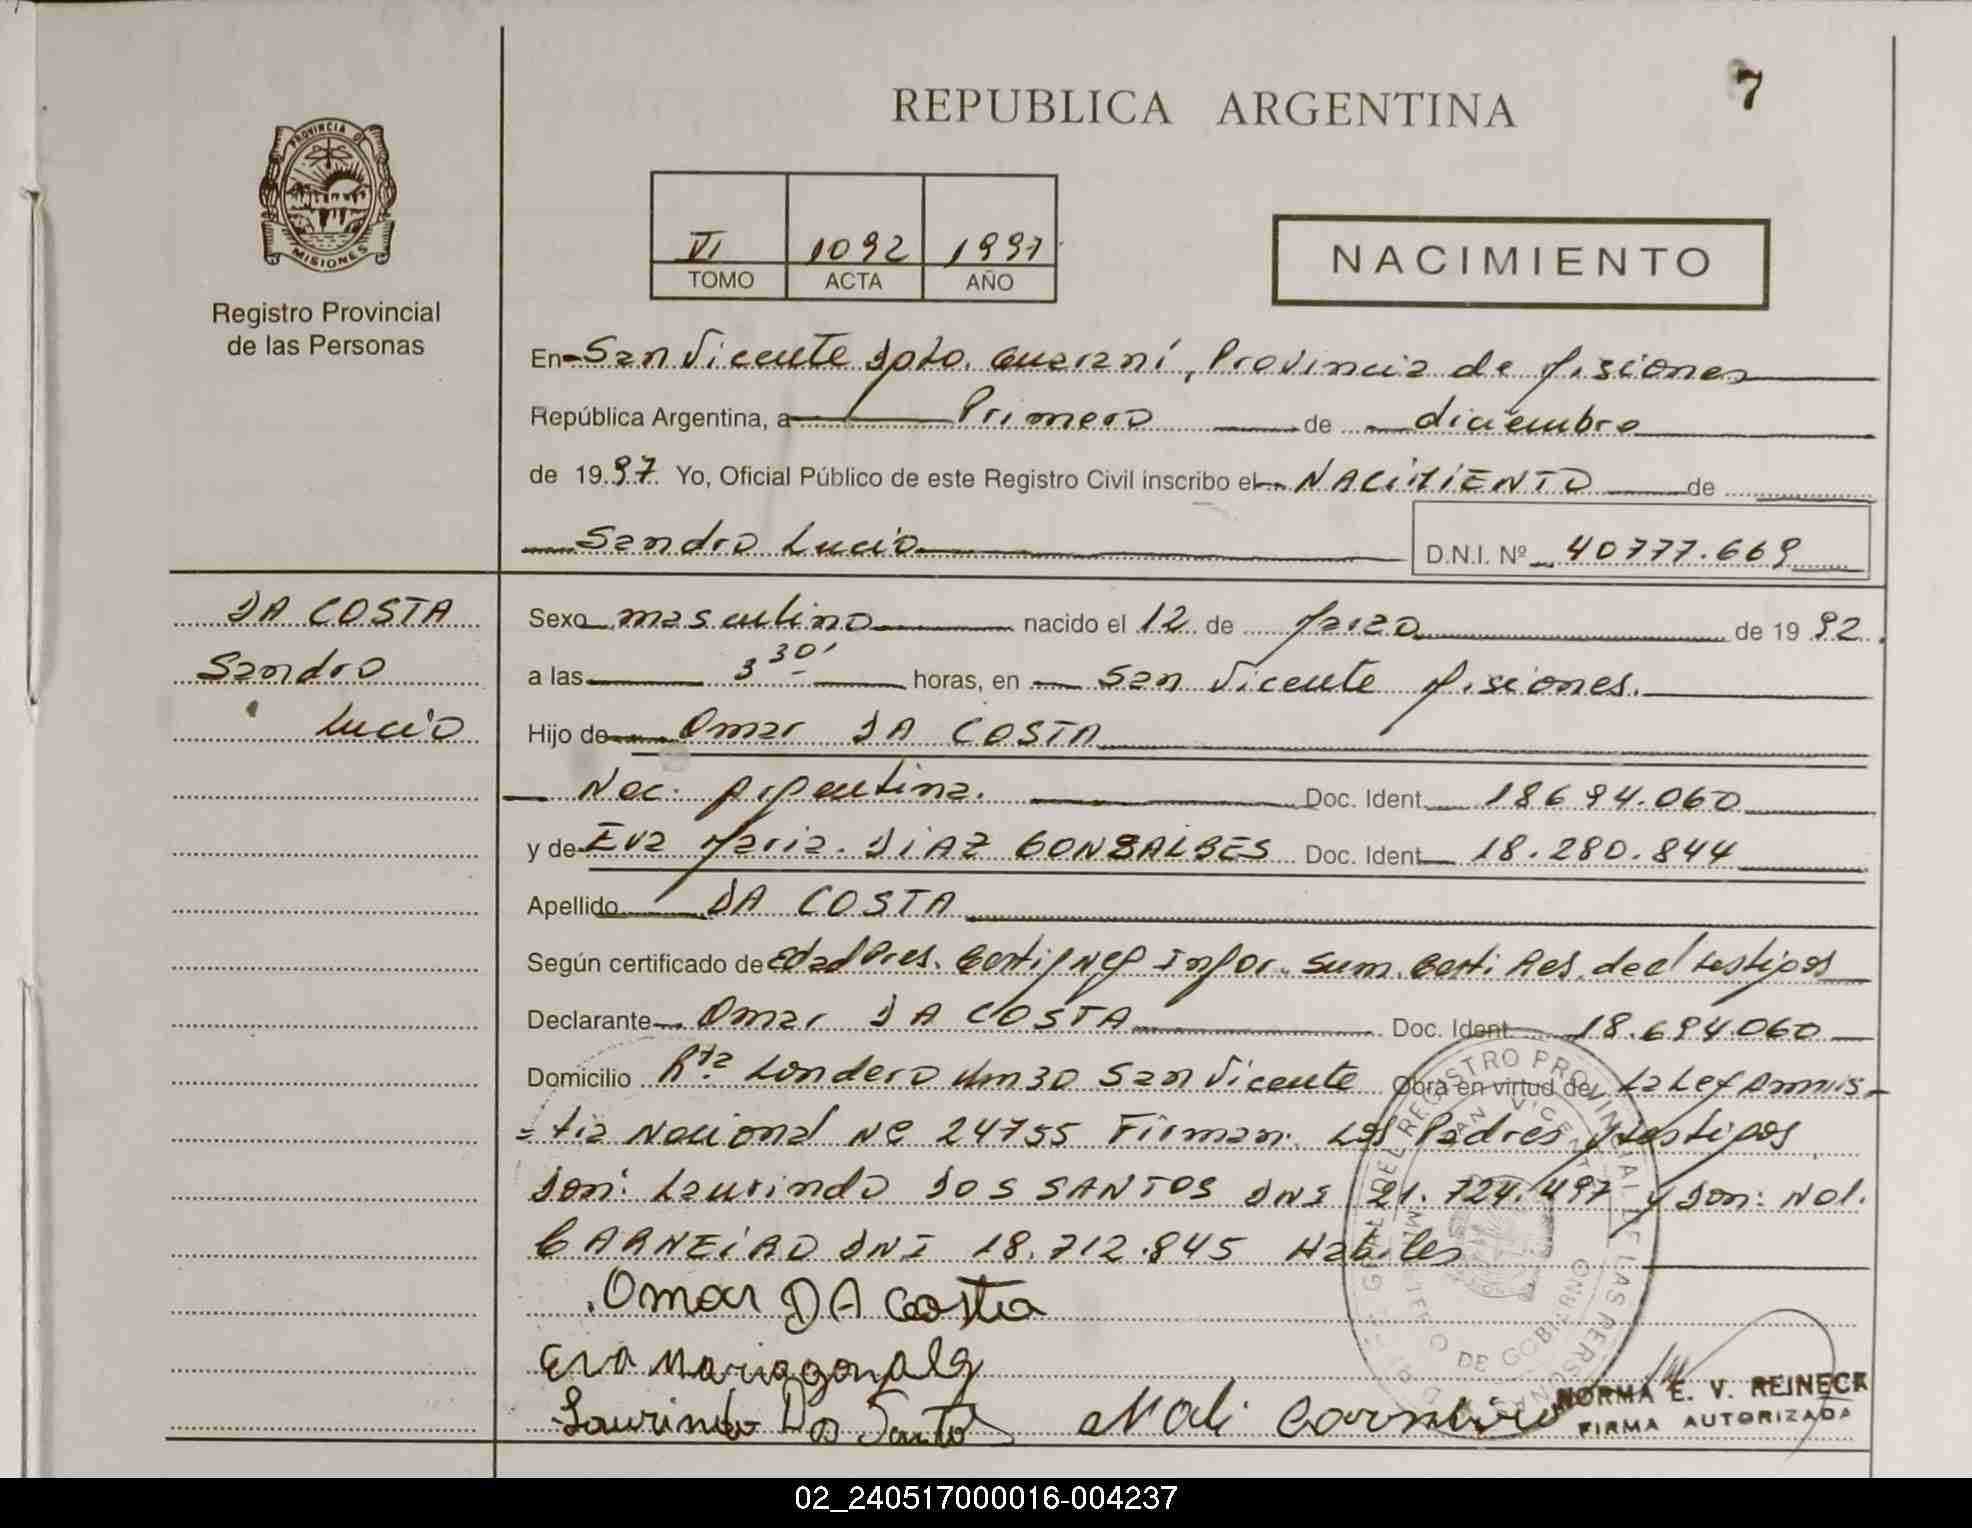 7
REPUBLICA ARGENTINA
PROVINCIA D
MISIONES
Registro Provincial
de las Personas
VI 1092 1997
TOMO ACTA AÑO
NACIMIENTO
En San Vicente Dpto. Guaraní, Provincia de Misiones
República Argentina, a Primero de diciembre
de 1997 Yo, Oficial Público de este Registro Civil inscribo el NACIMIENTO de
Sandro Lucio D.N.I. Nº 40777.669
DA COSTA
Sandro
Lucio
Sexo masculino nacido el 12 de Marzo de 19 92
a las 3 30' horas, en San Vicente Misiones.
Hijo de Omar DA COSTA
Nac. Argentina. Doc. Ident. 18694.060
y de Eva Maria. DIAZ GONSALBES Doc. Ident 18.280.844
Apellido DA COSTA
Según certificado de Edad Pres. Certif Neg Infor. Sum. Certi Res. decl testigos
Declarante Omar DA COSTA Doc. Ident. 18.694.060
Domicilio Rta Londero Km 30 San Vicente Obra en virtud de La Ley Amnis-
=tia Nacional Nº 24755 Firman: Los Padres y testigos
Don: Laurindo DOS SANTOS DNI 21.724.497 y Don: Nol.
CARNEIRO DNI 18.712.845 Habiles
Omar DA Costa
Eva Maria
Laurindo Dos Santos Noli Carneiro
NORMA E. V. REINECK
FIRMA AUTORIZADA
02_240517000016-004237